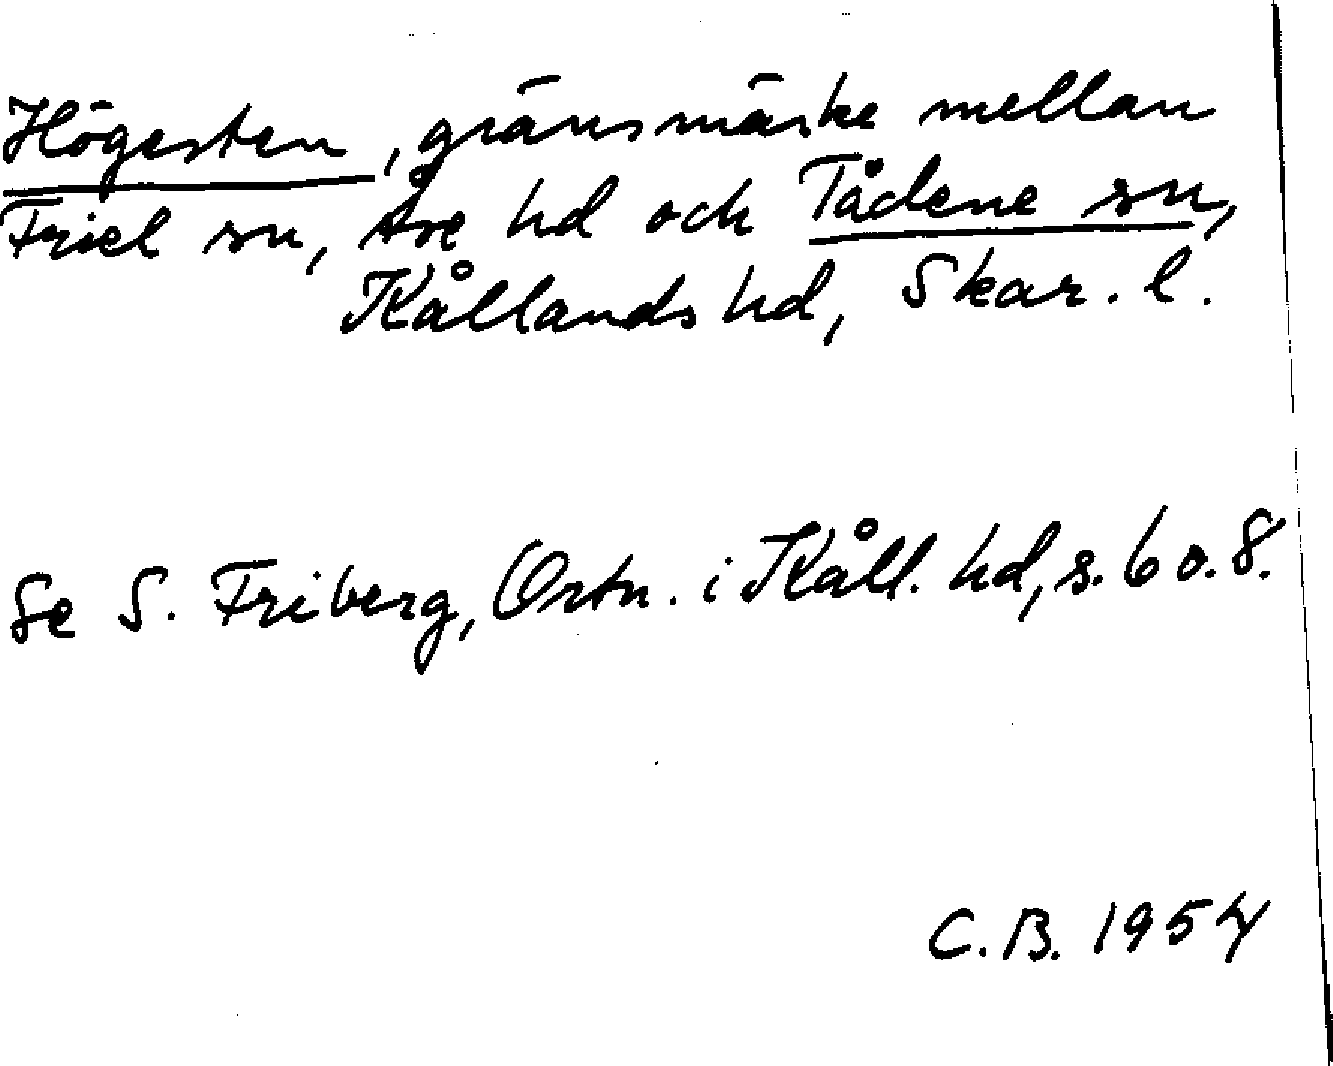 Högesten, gränsmärke mellan
Friel sn, Åse hd och Tådene sn,
Kållands hd, Skar. l.
Se S. Friberg, Ortn. i Kåll. hd, s. 6 o. 8.
C.B. 1954